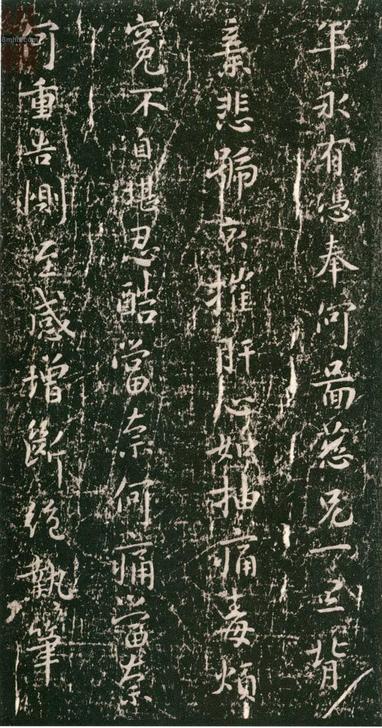 年永有憑奉何圖慈兄一旦背
棄悲號哀摧肝心如抽痛毒煩
冤不自堪忍酷當奈何痛當奈
何重告惻至感增斷絕執筆